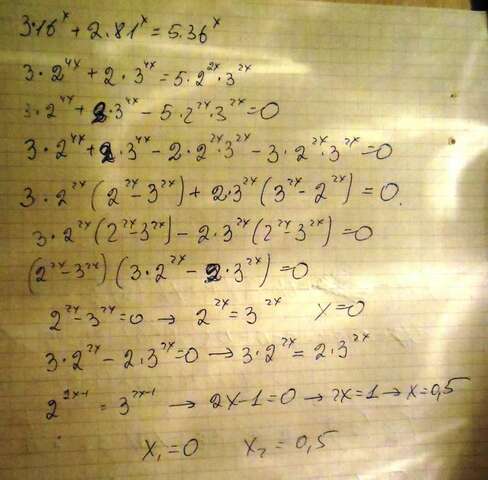 3·16^x + 2·81^x = 5·36^x
3·2^4x + 2·3^4x = 5·2^2x·3^2x
3·2^4x + 2·3^4x − 5·2^2x·3^2x = 0
3·2^4x + 2·3^4x − 2·2^2x·3^2x − 3·2^2x·3^2x = 0
3·2^2x (2^2x − 3^2x) + 2·3^2x (3^2x − 2^2x) = 0.
3·2^2x (2^2x − 3^2x) − 2·3^2x (2^2x − 3^2x) = 0
(2^2x − 3^2x) (3·2^2x − 2·3^2x) = 0
2^2x − 3^2x = 0 → 2^2x = 3^2x x = 0
3·2^2x − 2·3^2x = 0 → 3·2^2x = 2·3^2x
2^2x-1 = 3^2x-1 → 2x−1 = 0 → 2x = 1 → x = 0,5
x₁ = 0 x₂ = 0,5